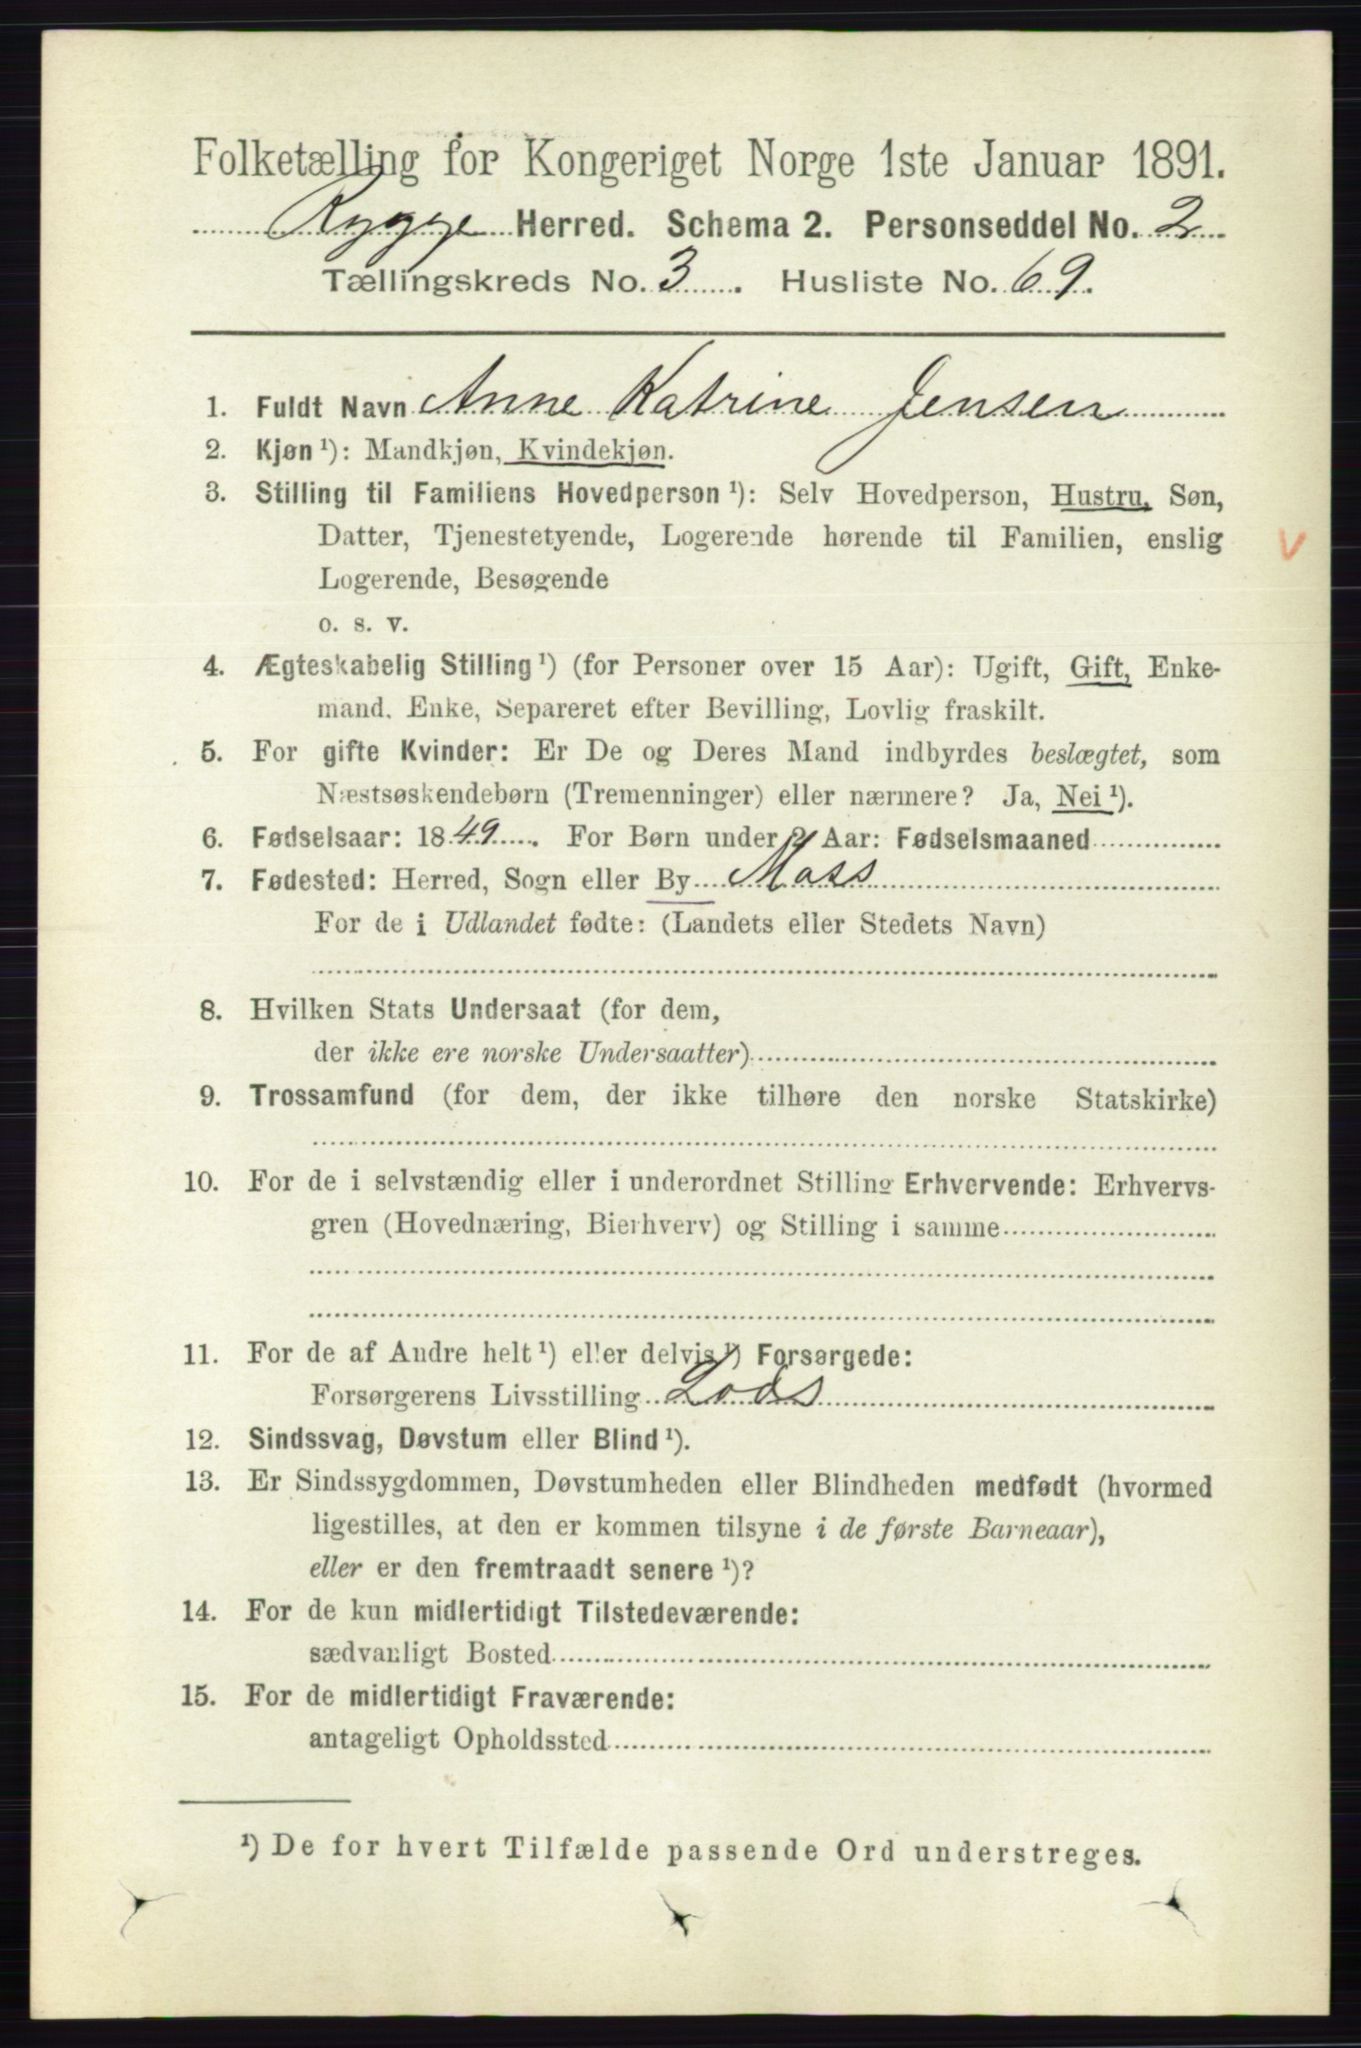 Folketælling for Kongeriget Norge 1ste Januar 1891.
Rygge Herred. Schema 2. Personseddel No. 2
Tællingskreds No. 3. Husliste No. 69.
1. Fuldt Navn Anne Katrine Jensen
2. Kjøn ¹): Mandkjøn, Kvindekjøn.
3. Stilling til Familiens Hovedperson ¹): Selv Hovedperson, Hustru, Søn,
Datter, Tjenestetyende, Logerende hørende til Familien, enslig
Logerende, Besøgende
o. s. v.
4. Ægteskabelig Stilling ¹) (for Personer over 15 Aar): Ugift, Gift, Enke-
mand, Enke, Separeret efter Bevilling, Lovlig fraskilt.
5. For gifte Kvinder: Er De og Deres Mand indbyrdes beslægtet, som
Næstsøskendebørn (Tremenninger) eller nærmere? Ja, Nei ¹).
6. Fødselsaar: 1849. For Børn under 2 Aar: Fødselsmaaned
7. Fødested: Herred, Sogn eller By Moss
For de i Udlandet fødte: (Landets eller Stedets Navn)
8. Hvilken Stats Undersaat (for dem,
der ikke ere norske Undersaatter)
9. Trossamfund (for dem, der ikke tilhøre den norske Statskirke)
10. For de i selvstændig eller i underordnet Stilling Erhvervende: Erhvervs-
gren (Hovednæring, Bierhverv) og Stilling i samme
11. For de af Andre helt ¹) eller delvis ¹) Forsørgede:
Forsørgerens Livsstilling Lods
12. Sindssvag, Døvstum eller Blind ¹).
13. Er Sindssygdommen, Døvstumheden eller Blindheden medfødt (hvormed
ligestilles, at den er kommen tilsyne i de første Barneaar),
eller er den fremtraadt senere ¹)?
14. For de kun midlertidigt Tilstedeværende:
sædvanligt Bosted
15. For de midlertidigt Fraværende:
antageligt Opholdssted
¹) De for hvert Tilfælde passende Ord understreges.